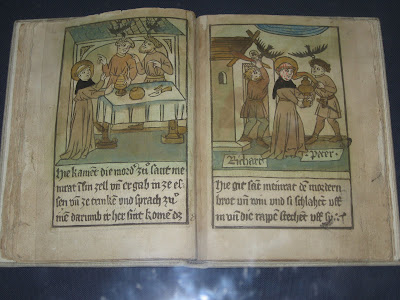 Hie kamēt die mord zů sant mei
nrat Jn sin zell vn er gab in ze es
sen vn ze trinken vnd sprach zů
inen darumb ir her sint komē dz
Richart
Peter
Hie git sant meinrat dē mordern
brot vn win vnd si schlahen vff
in vn die rappen stechent vff sy